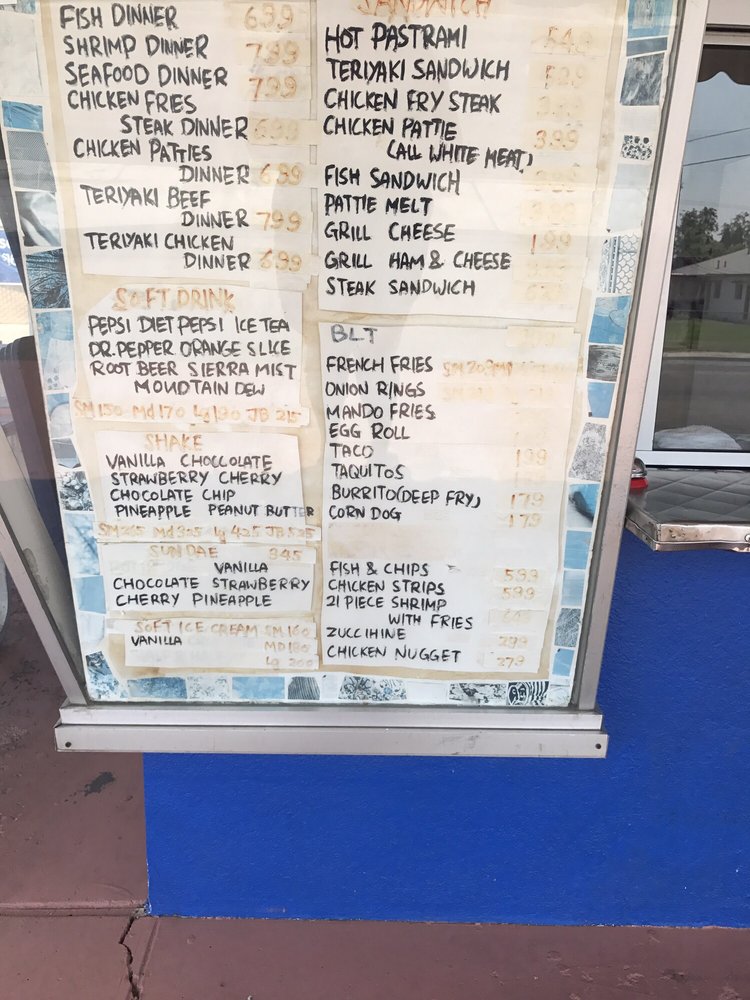 FISH DINNER 699
SHRIMP DINNER 799
SEAFOOD DINNER 799
CHICKEN FRIES
STEAK DINNER 699
CHICKEN PATTIES
DINNER 699
TERIYAKI BEEF
DINNER 799
TERIYAKI CHICKEN
DINNER 699
SOFT DRINK
PEPSI DIET PEPSI ICE TEA
DR. PEPPER ORANGE SLICE
ROOT BEER SIERRA MIST
MOUDTAIN DEW
SM 150 Md 170 Lg 190 JB 215
SHAKE
VANILLA CHOCCOLATE
STRAWBERRY CHERRY
CHOCOLATE CHIP
PINEAPPLE PEANUT BUTTER
SM 265 Md 305 Lg 425 JB 525
SUNDAE 345
VANILLA
CHOCOLATE STRAWBERRY
CHERRY PINEAPPLE
SOFT ICE CREAM SM 160
VANILLA MD 180
Lg 200
SANDWICH
HOT PASTRAMI 549
TERIYAKI SANDWICH
CHICKEN FRY STEAK
CHICKEN PATTIE 399
(ALL WHITE MEAT)
FISH SANDWICH
PATTIE MELT
GRILL CHEESE 199
GRILL HAM & CHEESE
STEAK SANDWICH
BLT
FRENCH FRIES
ONION RINGS
MANDO FRIES
EGG ROLL
TACO 199
TAQUITOS
BURRITO (DEEP FRY) 179
CORN DOG 179
FISH & CHIPS 599
CHICKEN STRIPS 599
21 PIECE SHRIMP
WITH FRIES
ZUCCIHINE 299
CHICKEN NUGGET 279